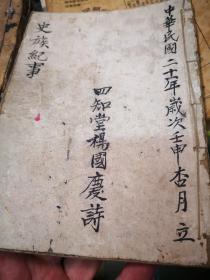 中華民國二十一年歲次壬申杏月立
四知堂楊國慶詩
史族紀事